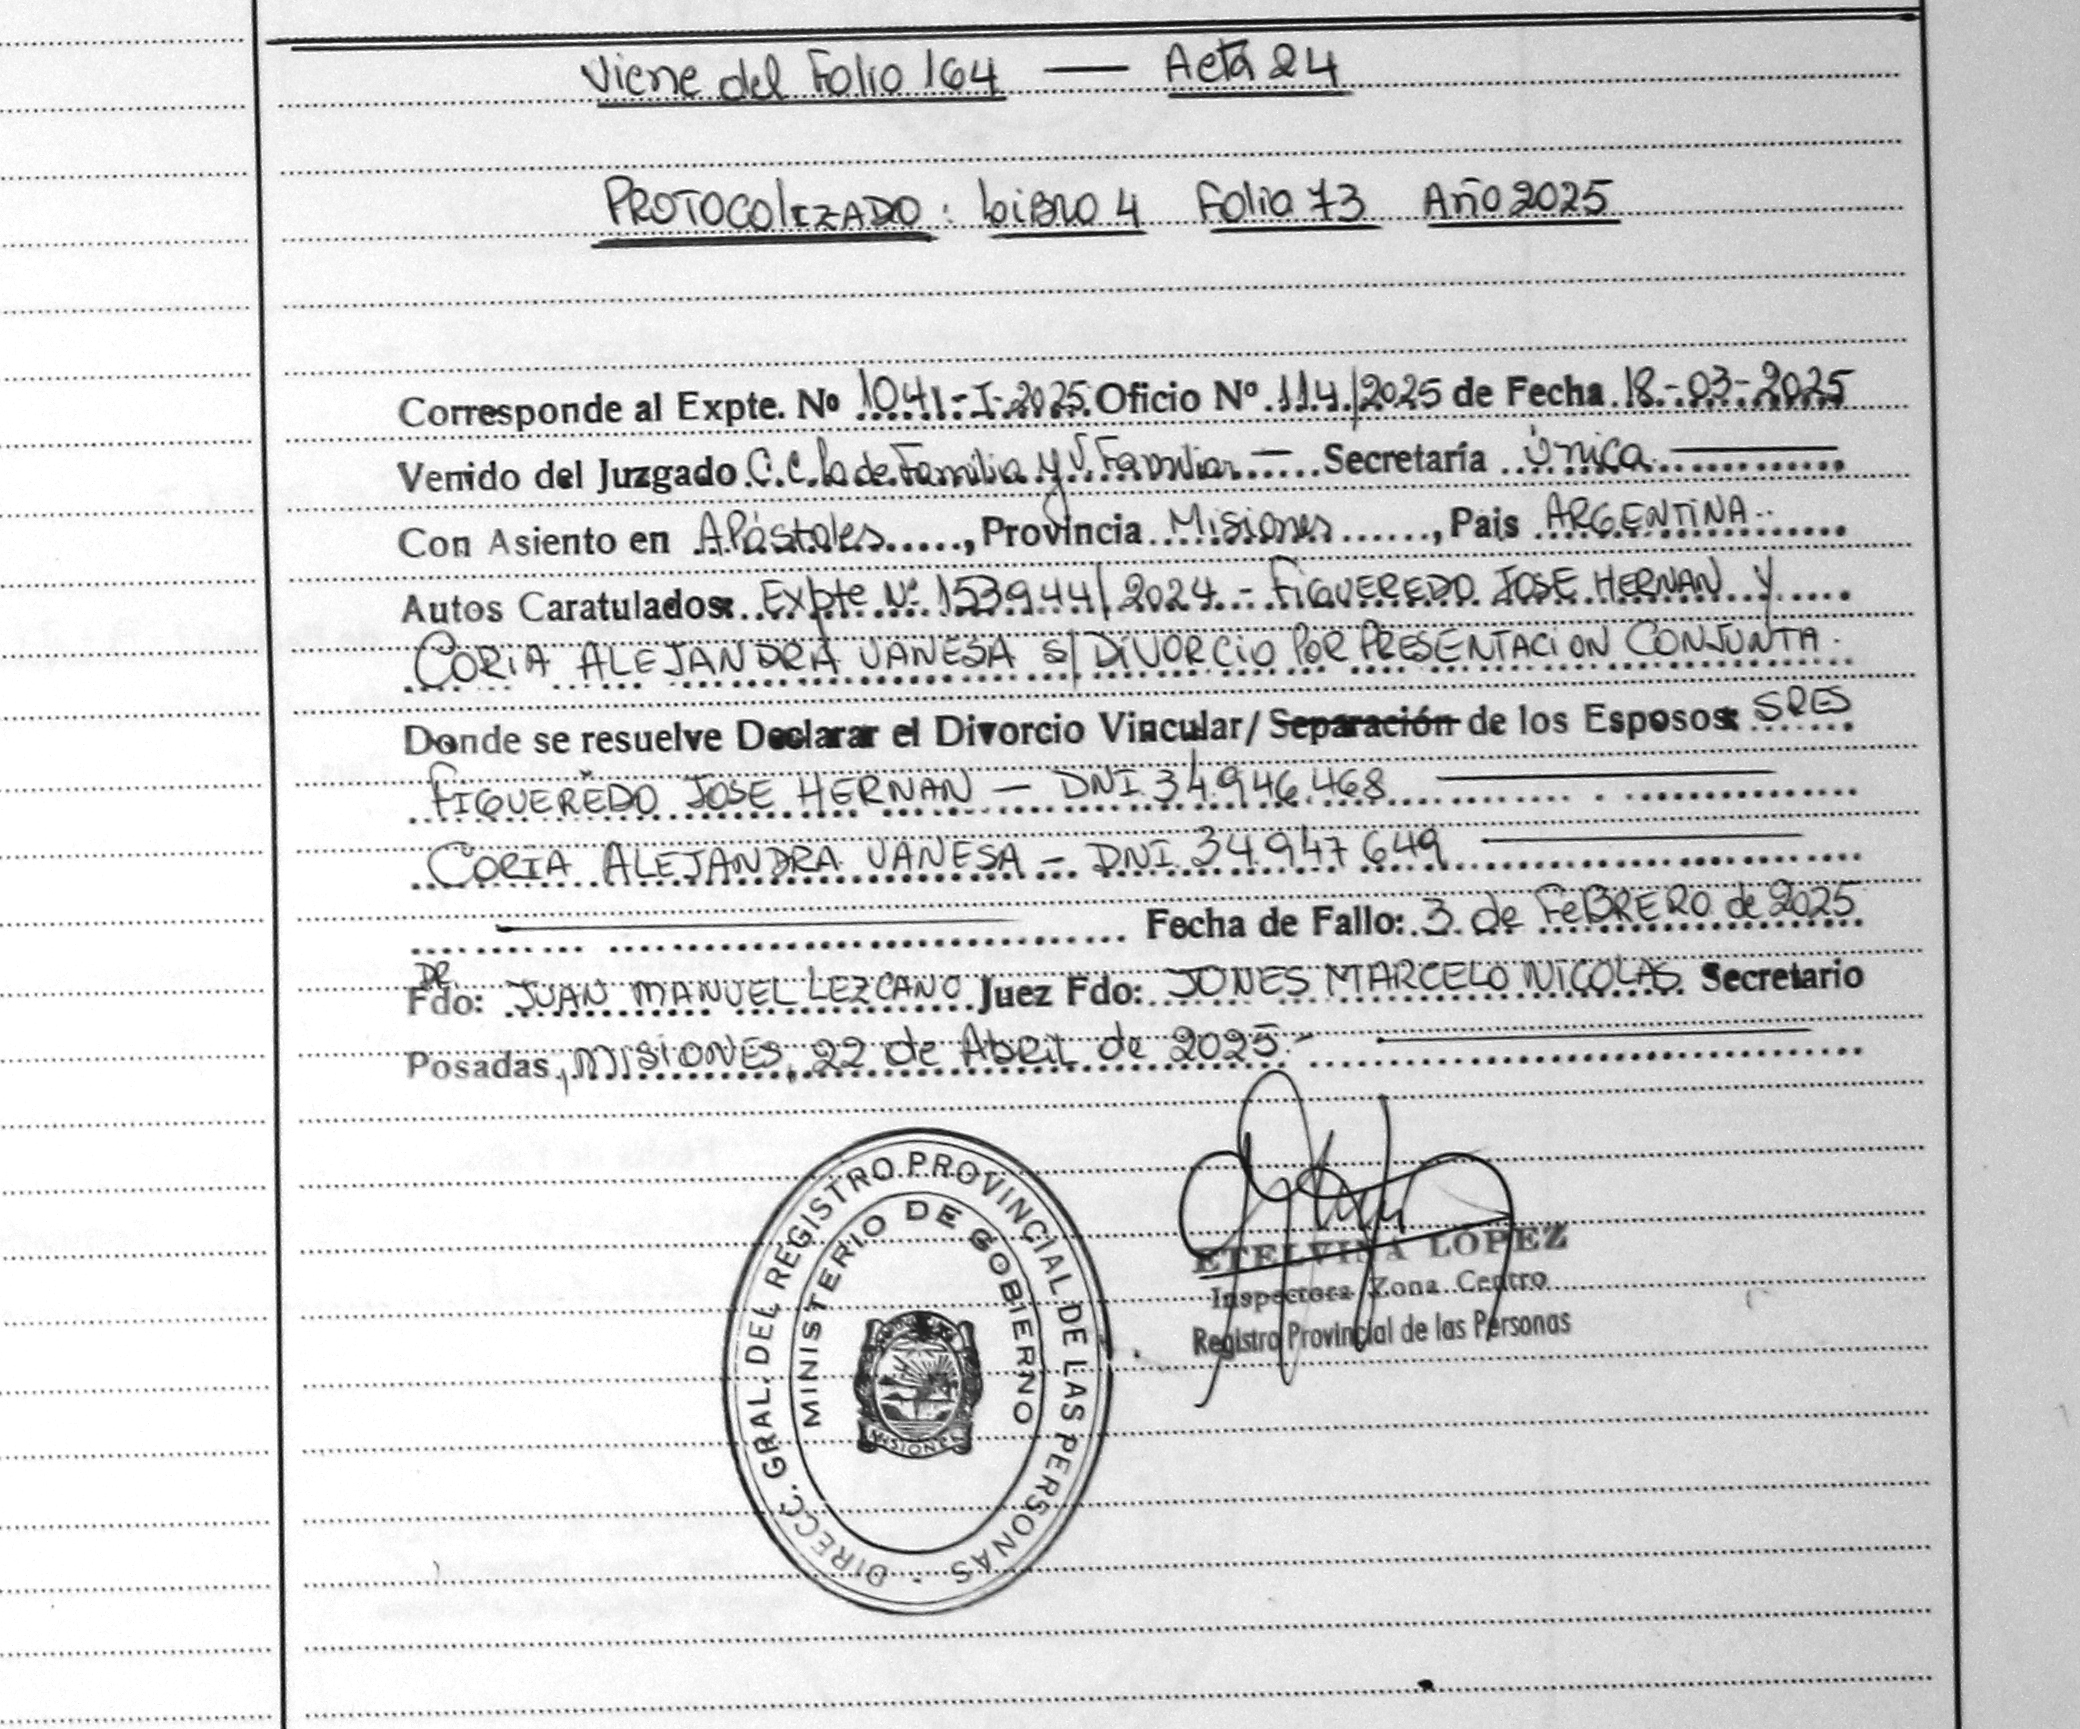 Viene del Folio 164 — Acta 24
PROTOCOLIZADO: Libro 4 Folio 73 Año 2025
Corresponde al Expte. Nº 1041-I-2025 Oficio Nº 114/2025 de Fecha 18-03-2025
Venido del Juzgado C.C.L. de Familia y V. Familiar — Secretaría Única
Con Asiento en Apóstoles, Provincia Misiones, Pais ARGENTINA
Autos Caratulados: Expte Nº 153944/2024 - FIGUEREDO JOSE HERNAN Y
CORIA ALEJANDRA VANESA S/ DIVORCIO POR PRESENTACION CONJUNTA.
Donde se resuelve Declarar el Divorcio Vincular/ Separación de los Esposos: SRES
FIGUEREDO JOSE HERNAN — DNI 34.946.468
CORIA ALEJANDRA VANESA — DNI 34.947 649
Fecha de Fallo: 3 de FeBRERO de 2025
DR.
Fdo: JUAN MANUEL LEZCANO Juez Fdo: JONES MARCELO NICOLAS Secretario
Posadas, MISIONES, 22 de Abril de 2025.-
DIRECC. GRAL. DEL REGISTRO PROVINCIAL DE LAS PERSONAS -
MINISTERIO DE GOBIERNO
MISIONES
ETELVINA LOPEZ
Inspectora Zona Centro
Registro Provincial de las Personas